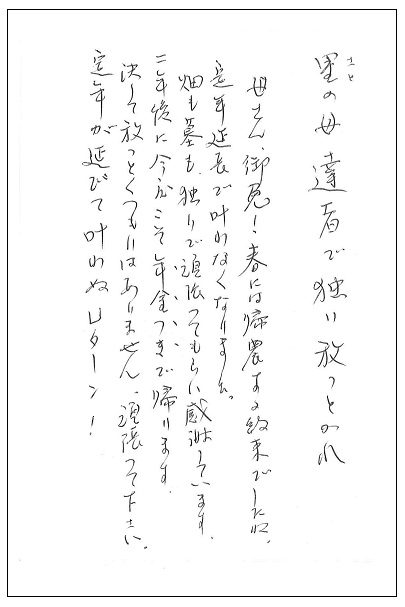 里の母達者で独り放っとかれ
さと
母さん、御免！春には帰農する約束でしたね。
定年延長で叶わなくなりました。
畑も墓も、独りで頑張ってもらい感謝しています。
二年後に今度こそ年金つきで帰ります。
決して放っとくつもりはありません、頑張って下さい。
定年が延びて叶わぬUターン！